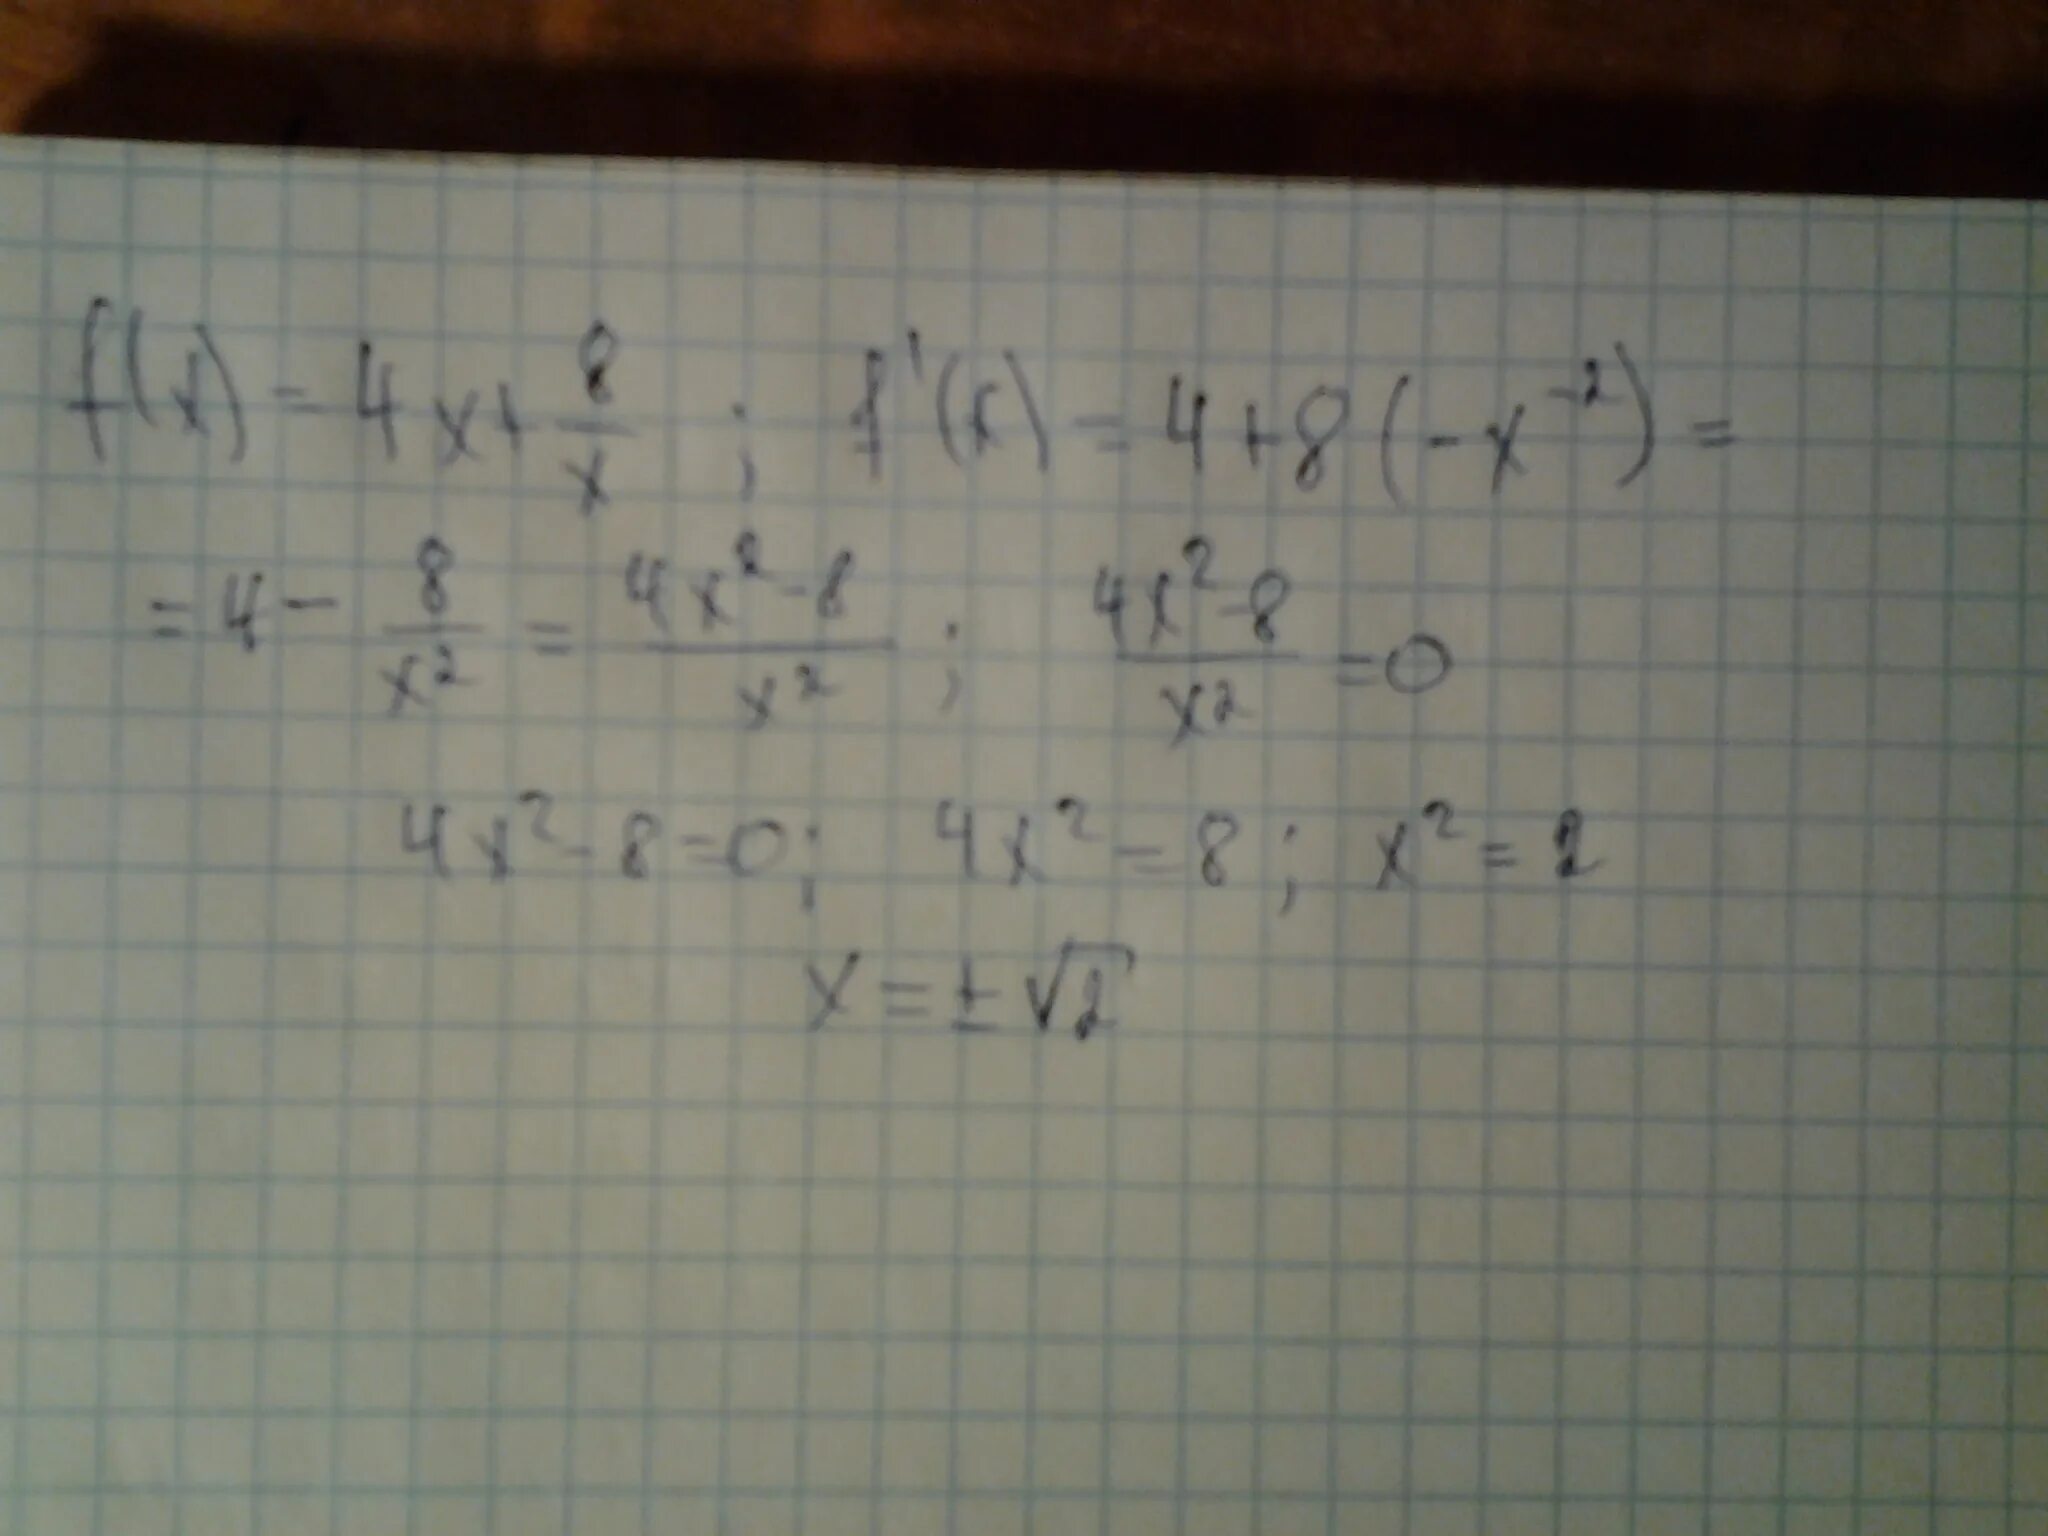 f(x) = 4x + 8/x ; f'(x) = 4 + 8(-x⁻²) =
= 4 - 8/x² = (4x² - 8)/x² ; (4x² - 8)/x² = 0
4x² - 8 = 0; 4x² = 8; x² = 2
x = ±√2